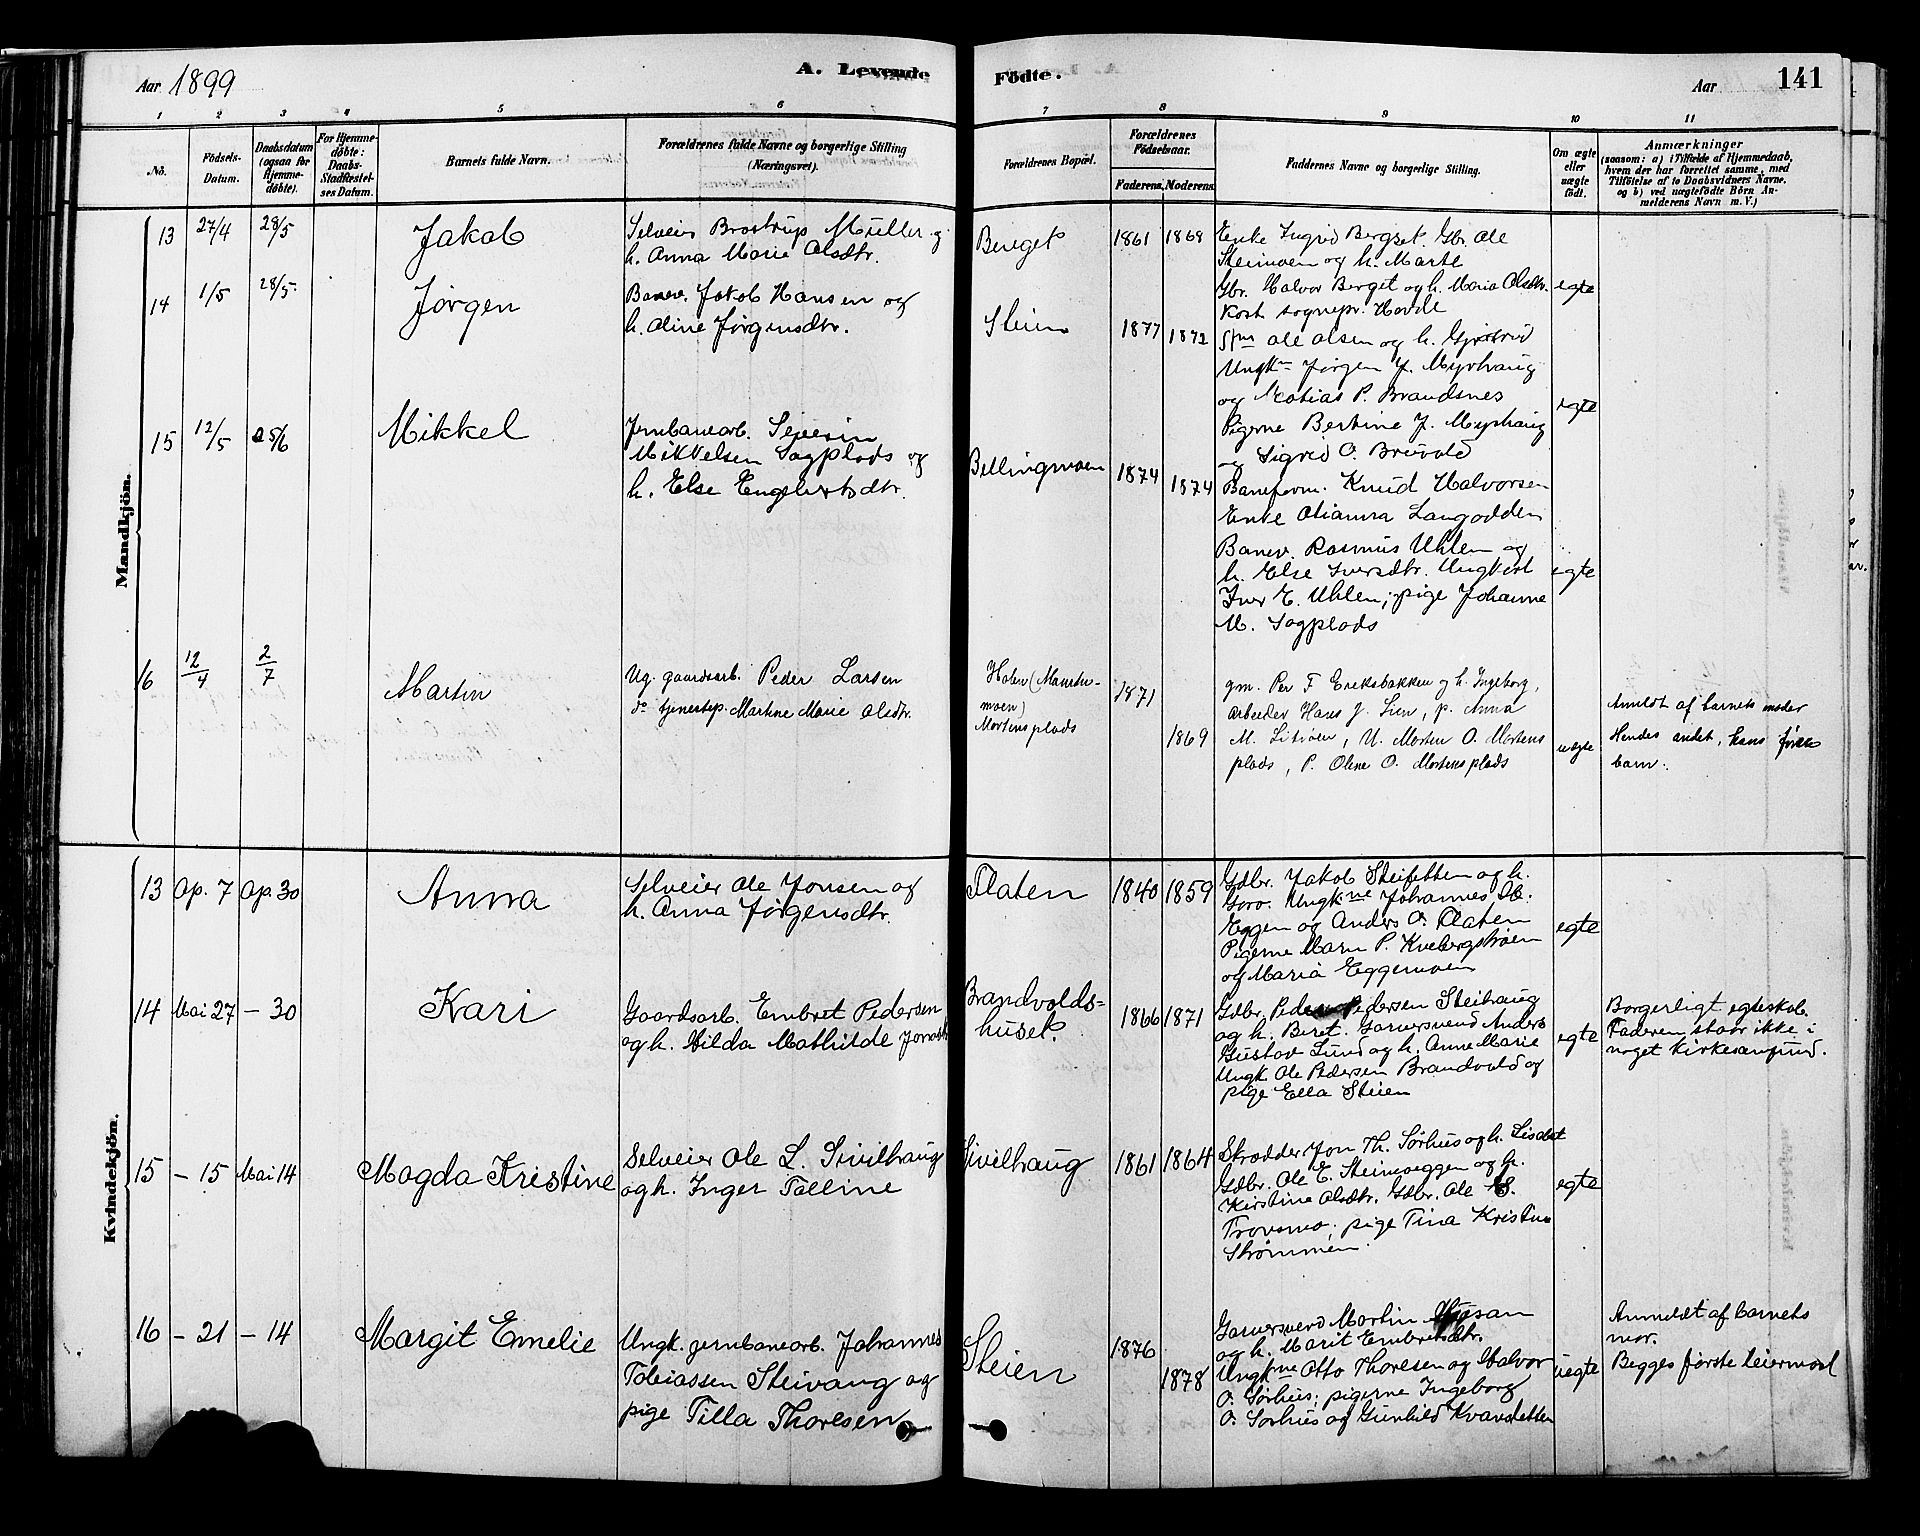 Aar 1899
A. Levende
Födte.
Aar
141
1 2 3 4 5 6 7 8 9 10 11
No.
Födsels-
Datum.
Daabsdatum
(ogsaa for
Hjemme-
döbte).
For Hjemme-
döbte:
Daabs-
Stadfæstel-
ses Datum.
Barnets fulde Navn.
Forældrenes fulde Navne og borgerlige Stilling
(Næringsvei).
Forældrenes Bopæl.
Forældrenes
Födselsaar.
Faderens. Moderens.
Faddernes Navne og borgerlige Stilling.
Om ægte
eller
uægte
födt.
Anmærkninger
(saasom: a) i Tilfælde af Hjemmedaab,
hvem der har forrettet samme, med
Tilföielse af to Daabsvidners Navne,
og b) ved uægtefödte Börn An-
melderens Navn m. V.)
Mandkjön.
13 27/4 28/5 Jakob
Selveier Brostrup Müller og
h. Anna Marie Olsdtr.
Berget 1861 1868
Enke Ingrid Bergset. Gbr. Ole
Steimoen og h. Marte
Gbr. Halvor Berget og h. Maria Olsdtr.
Kost sognepr. Hovde
egte
14 1/5 28/5 Jørgen
Banev. Jakob Hansen og
h. Oline Jørgensdtr.
Steien 1877 1872
Ole Olsen og h. Gjertrud
Ungkm Jørgen J. Myrhaug
og Matias P. Brandsnes
Pigerne Bertine J. Myrhaug
og Sigrid O. Bruvold
egte
15 12/5 25/6 Mikkel
Jernbanearb. Severin
Mikkelsen Sagplads og
h. Else Engebretsdtr.
Bellingmoen 1874 1874
Baneform. Knud Halvorsen
Enke Olianna Langodden
Banev. Rasmus Uhlen og
h. Else Iversdtr. Ungkarl
Iver E. Uhlen; pige Johanne
M. Sagplads
egte
16 12/4 2/7 Martin
Ug. gaardsarb. Peder Larsen
do tjenestep. Martine Marie Olsdtr.
Holen
moen)
Mortensplads
1871
1869
gm. Per F Eriksbakken og h. Ingeborg,
arbeider Hans J. Lien, p. Anna
M. Litroen, U. Morten O. Mortens
plads, P. Oline O. Mortensplads
uegte
Anmeldt af barnets moder
Hendes andet, hans første
barn.
Kvindekjön.
13 Ap. 7 Ap. 30 Anna
Selveier Ole Jonsen og
h. Anna Jørgensdtr.
Flaten 1840 1859
Gdbr. Jakob Steifetten og h.
Goro. Ungkne Johannes H.
Eggen og Anders O. Flaten
Pigerne Maren P. Kvebergshøen
og Maria Eggemoen
egte
14 Mai 27 – 30 Kari
Gaardsarb. Embret Pedersen
og h. Hilda Mathilde
Brandvolds=
huset.
1866 1871
Gdbr. Peder Pedersen Steihaug
og h. Beret. Garversvend Anders
Gustav Lund og h. Anne Marie
Ungk. Ole Pedersen Brandvold og
pige Ella Steien
egte
Borgerligt egteskab.
Faderen staar ikke i
noget kirkesamfund.
15 – 15 Mai 14 Magda Kristine
Selveier Ole L. Sivilhaug
og h. Inger Talline
Sivilhaug 1861 1864
Skrædder Jon Th. Sørhus og h. Lisbet
Gdbr. Ole E. Steimoeggen og h.
Kirstine Olsdtr. Gdbr. Ole E.
Trovsmo; pige Tina Kristine
Strømmen.
egte
16 – 21 – 14 Margit Emelie
Ungk. jernbanearb. Johannes
Tobiassen Steivang og
pige Tilla Thoresen
Steien 1876
1878
Garversvend Martin
og h. Marit Embretsdtr.
Ungkne Otto Thoresen og Halvor
O. Sørhus; pigerne Ingeborg
O. Sørhus og Gunhild Kvansletten
uegte
Anmeldt af barnets
mor.
Begges første leiermaal